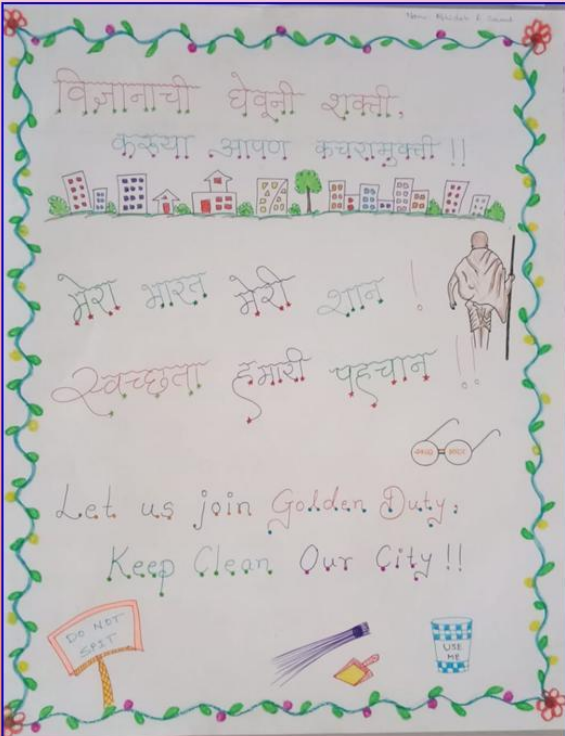 विज्ञानाची घेवूनी शक्ती,
करूया आपण कचरामुक्ती !!
मेरा भारत मेरी शान !
स्वच्छता हमारी पहचान !!
Let us join Golden Duty,
Keep Clean Our City !!
DO NOT
SPIT
USE
ME